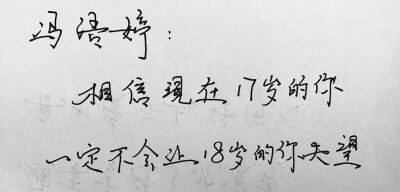 冯语婷：
相信現在17岁的你
一定不会让18岁的你失望